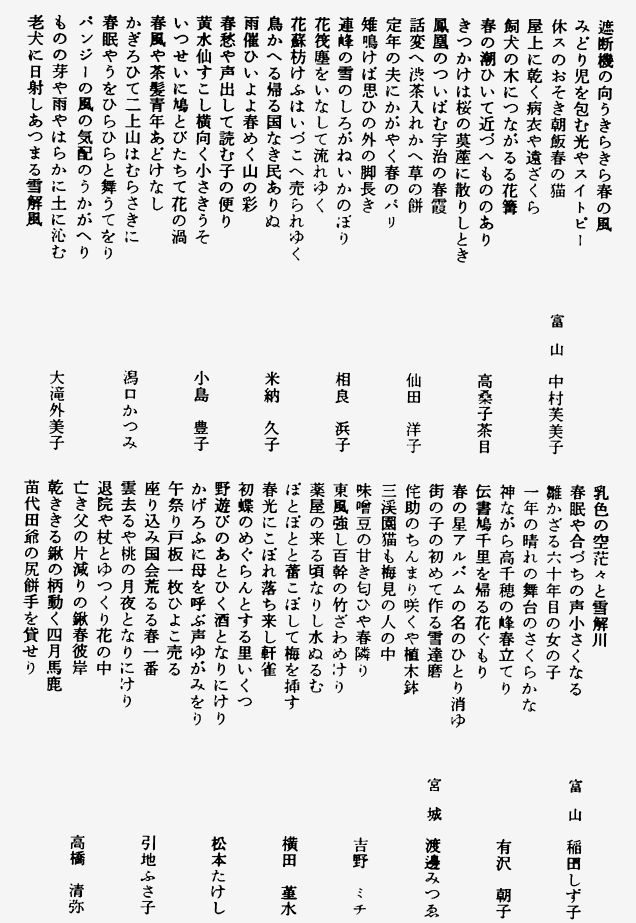 遮断機の向うきらきら春の風
みどり児を包む光やスイトピー
休スのおそき朝飯春の猫
富山 中村芙美子
屋上に乾く病衣や遠ざくら
飼犬の木につながるる花篝
春の潮ひいて近づへもののあり
高桑子茶目
きつかけは桜の茣蓙に散りしとき
鳳凰のついばむ宇治の春霞
話変へ渋茶入れかへ草の餅
仙田洋子
定年の夫にかがやく春のバリ
雉鳴けば思ひの外の脚長き
連峰の雪のしろがねいかのぼり
相良浜子
花筏塵をいなして流れゆく
花蘇枋けふはいづこへ売られゆく
鳥かへる帰る国なき民ありぬ
米納久子
雨催ひいよよ春めく山の彩
春愁や声出して読む子の便り
黄水仙すこし横向く小さきうそ
小島豊子
いつせいに鳩とびたちて花の渦
春風や茶髪青年あどけなし
かぎろひて二上山はむらさきに
潟口かつみ
春眠やうをひらひらと舞うてをり
パンジーの風の気配のうかがへり
ものの芽や雨やはらかに土に沁む
大滝外美子
老犬に日射しあつまる雪解風
乳色の空茫々と雪解川
春眠や合づちの声小さくなる
富山 稲田しず子
雛かざる六十年目の女の子
一年の晴れの舞台のさくらかな
神ながら高千穂の峰春立てり
有沢朝子
伝書鳩千里を帰る花ぐもり
春の星アルバムの名のひとり消ゆ
街の子の初めて作る雪達磨
宮城 渡邊みつゑ
侘助のちんまり咲くや植木鉢
三渓園猫も梅見の人の中
味噌豆の甘き匂ひや春隣り
吉野ミチ
東風強し百幹の竹ざわめけり
薬屋の来る頃なりし水ぬるむ
ぽとぽとと蕾こぼして梅を挿す
横田菫水
春光にこぼれ落ち来し軒雀
初蝶のめぐらんとする里いくつ
野遊びのあとひく酒となりにけり
松本たけし
かげろふに母を呼ぶ声ゆがみをり
午祭り戸板一枚ひよこ売る
座り込み国会荒るる春一番
引地ふさ子
雲去るや桃の月夜となりにけり
退院や杖とゆつくり花の中
亡き父の片減りの鍬春彼岸
高橋清弥
乾ききる鍬の柄動く四月馬鹿
苗代田爺の尻餅手を貸せり